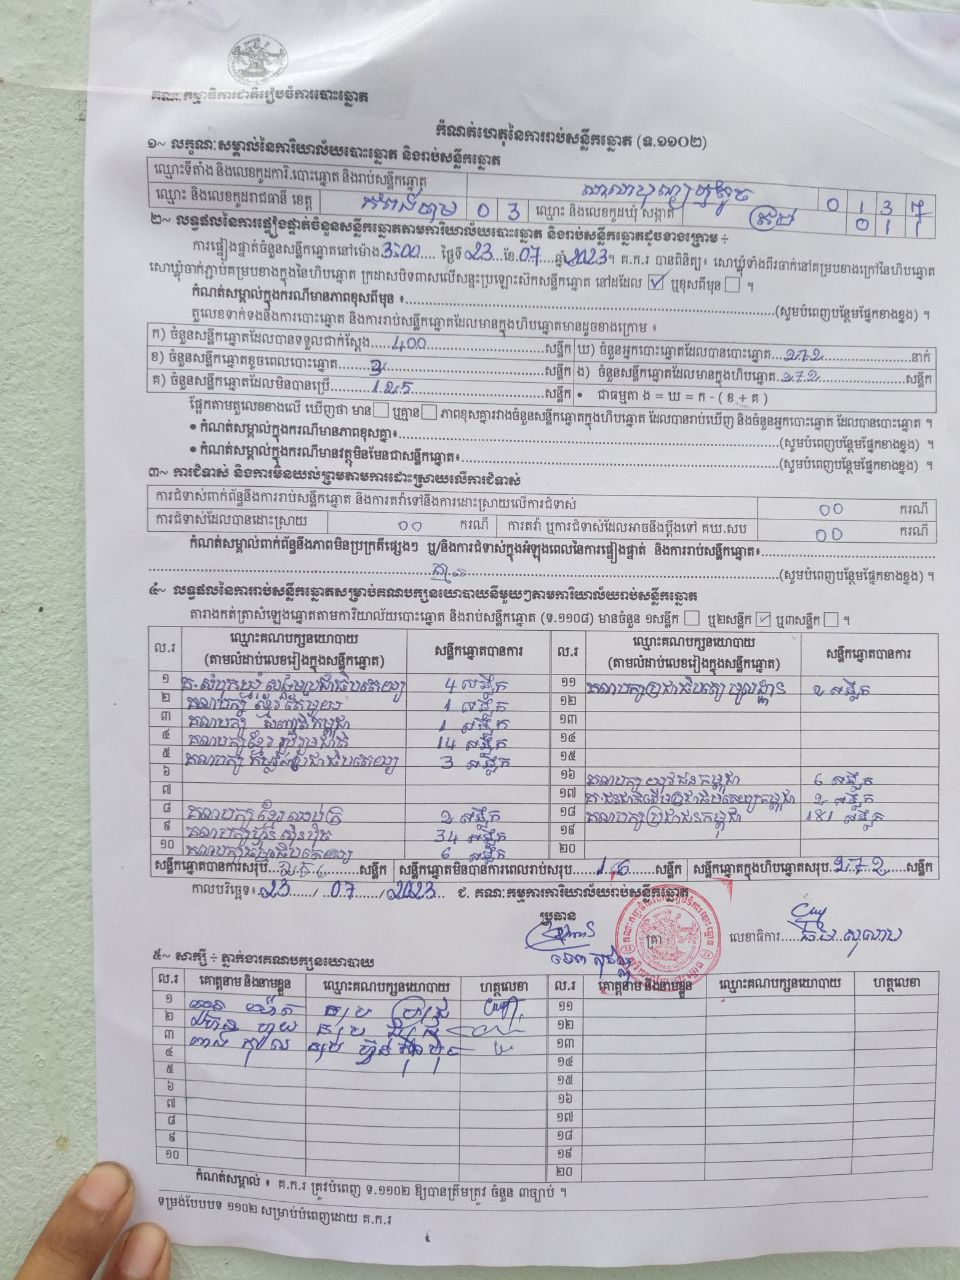 គណៈកម្មាធិការជាតិរៀបចំការបោះឆ្នោត
កំណត់ហេតុនៃការរាប់សន្លឹកឆ្នោត (ទ.១១០២)
១~ លក្ខណៈសម្គាល់នៃការិយាល័យបោះឆ្នោត និងរាប់សន្លឹកឆ្នោត
ឈ្មោះទីតាំង និងលេខកូដការិ.បោះឆ្នោត និងរាប់សន្លឹកឆ្នោត
ឈ្មោះ និងលេខកូដរាជធានី ខេត្ត កំពង់ចាម 0 3 ឈ្មោះ និងលេខកូដឃុំ សង្កាត់
២~ លទ្ធផលនៃការផ្ទៀងផ្ទាត់ចំនួនសន្លឹកឆ្នោតតាមការិយាល័យបោះឆ្នោត និងរាប់សន្លឹកឆ្នោតដូចខាងក្រោម ÷
ការផ្ទៀងផ្ទាត់ចំនួនសន្លឹកឆ្នោតនៅម៉ោង 3:00 ថ្ងៃទី 23 ខែ 07 ឆ្នាំ 2023 ។ គ.ក.រ បានពិនិត្យ៖ សោឃ្លុំទាំងពីរចាក់នៅគម្របខាងក្រៅនៃហិបឆ្នោត
សោឃ្លុំចាក់ភ្ជាប់គម្របខាងក្នុងនៃហិបឆ្នោត ក្រដាសបិទពាសលើសន្ទះប្រឡោះស៊កសន្លឹកឆ្នោត នៅដដែល ☑ ឬខុសពីមុន ☐ ។
កំណត់សម្គាល់ក្នុងករណីមានភាពខុសពីមុន ៖ (សូមបំពេញបន្ថែមផ្នែកខាងខ្នង) ។
តួលេខទាក់ទងនឹងការបោះឆ្នោត និងការរាប់សន្លឹកឆ្នោតដែលមានក្នុងហិបឆ្នោតមានដូចខាងក្រោម ៖
ក) ចំនួនសន្លឹកឆ្នោតដែលបានទទួលជាក់ស្ដែង 400 សន្លឹក ឃ) ចំនួនអ្នកបោះឆ្នោតដែលបានបោះឆ្នោត 272 នាក់
ខ) ចំនួនសន្លឹកឆ្នោតខូចពេលបោះឆ្នោត 3 សន្លឹក ង) ចំនួនសន្លឹកឆ្នោតដែលមានក្នុងហិបឆ្នោត 272 សន្លឹក
គ) ចំនួនសន្លឹកឆ្នោតដែលមិនបានប្រើ 125 សន្លឹក • ជាធម្មតា ង = ឃ = ក - ( ខ + គ )
ផ្អែកតាមតួលេខខាងលើ ឃើញថា មាន ☐ ឬគ្មាន ☐ ភាពខុសគ្នារវាងចំនួនសន្លឹកឆ្នោតក្នុងហិបឆ្នោត ដែលបានរាប់ឃើញ និងចំនួនអ្នកបោះឆ្នោត ដែលបានបោះឆ្នោត ។
• កំណត់សម្គាល់ក្នុងករណីមានភាពខុសគ្នា៖ (សូមបំពេញបន្ថែមផ្នែកខាងខ្នង) ។
• កំណត់សម្គាល់ក្នុងករណីមានវត្ថុមិនមែនជាសន្លឹកឆ្នោត៖ (សូមបំពេញបន្ថែមផ្នែកខាងខ្នង) ។
៣~ ការជំទាស់ និងការមិនយល់ព្រមតាមការដោះស្រាយលើការជំទាស់
ការជំទាស់ពាក់ព័ន្ធនឹងការរាប់សន្លឹកឆ្នោត និងការតវ៉ាទៅនឹងការដោះស្រាយលើការជំទាស់ 00 ករណី
ការជំទាស់ដែលបានដោះស្រាយ 00 ករណី ការតវ៉ា ឬការជំទាស់ដែលអាចនឹងប្ដឹងទៅ គឃ.សប 00 ករណី
កំណត់សម្គាល់ពាក់ព័ន្ធនឹងភាពមិនប្រក្រតីផ្សេងៗ ឬ/និងការជំទាស់ក្នុងអំឡុងពេលនៃការផ្ទៀងផ្ទាត់ និងការរាប់សន្លឹកឆ្នោត៖
(សូមបំពេញបន្ថែមផ្នែកខាងខ្នង) ។
៤~ លទ្ធផលនៃការរាប់សន្លឹកឆ្នោតសម្រាប់គណបក្សនយោបាយនីមួយៗតាមការិយាល័យរាប់សន្លឹកឆ្នោត
តារាងកត់ត្រាសំឡេងឆ្នោតតាមការិយាល័យបោះឆ្នោត និងរាប់សន្លឹកឆ្នោត (ទ.១១០៨) មានចំនួន ១សន្លឹក ☐ ឬ២សន្លឹក ☑ ឬ៣សន្លឹក ☐ ។
ល.រ ឈ្មោះគណបក្សនយោបាយ (តាមលំដាប់លេខរៀងក្នុងសន្លឹកឆ្នោត) សន្លឹកឆ្នោតបានការ ល.រ ឈ្មោះគណបក្សនយោបាយ (តាមលំដាប់លេខរៀងក្នុងសន្លឹកឆ្នោត) សន្លឹកឆ្នោតបានការ
១ គ.សំបុកឃ្មុំសង្គមប្រជាធិបតេយ្យ 4 សន្លឹក ១១ 2 សន្លឹក
២ គណបក្ស ខ្មែរតែមួយ 1 សន្លឹក ១២
៣ គណបក្ស សញ្ជាតិកម្ពុជា 1 សន្លឹក ១៣
៤ គណបក្សខ្មែររួបរួមជាតិ 14 សន្លឹក ១៤
៥ គណបក្ស កម្លាំងប្រជាធិបតេយ្យ 3 សន្លឹក ១៥
៦ ១៦ គណបក្ស យុវជនកម្ពុជា 6 សន្លឹក
៧ ១៧ គ.ជនជាតិដើមប្រជាធិបតេយ្យកម្ពុជា 2 សន្លឹក
៨ គណបក្ស ខ្មែរឈប់ក្រ 2 សន្លឹក ១៨ គណបក្សប្រជាជនកម្ពុជា 181 សន្លឹក
៩ គណបក្សហ៊្វុនស៊ិនប៉ិច 34 សន្លឹក ១៩
១០ 6 សន្លឹក ២០
សន្លឹកឆ្នោតបានការសរុប សន្លឹក សន្លឹកឆ្នោតមិនបានការពេលរាប់សរុប 16 សន្លឹក សន្លឹកឆ្នោតក្នុងហិបឆ្នោតសរុប 272 សន្លឹក
កាលបរិច្ឆេទ៖ 23 / 07 / 2023 ជ. គណៈកម្មការការិយាល័យរាប់សន្លឹកឆ្នោត
ប្រធាន ត្រា លេខាធិការ
៥~ សាក្សី ÷ ភ្នាក់ងារគណបក្សនយោបាយ
ល.រ គោត្តនាម និងនាមខ្លួន ឈ្មោះគណបក្សនយោបាយ ហត្ថលេខា ល.រ គោត្តនាម និងនាមខ្លួន ឈ្មោះគណបក្សនយោបាយ ហត្ថលេខា
១ ១១
២ ១២
៣ ១៣
៤ ១៤
៥ ១៥
៦ ១៦
៧ ១៧
៨ ១៨
៩ ១៩
១០ ២០
កំណត់សម្គាល់ ៖ គ.ក.រ ត្រូវបំពេញ ទ.១១០២ ឱ្យបានត្រឹមត្រូវ ចំនួន ៣ច្បាប់ ។
ទម្រង់បែបបទ ១១០២ សម្រាប់បំពេញដោយ គ.ក.រ